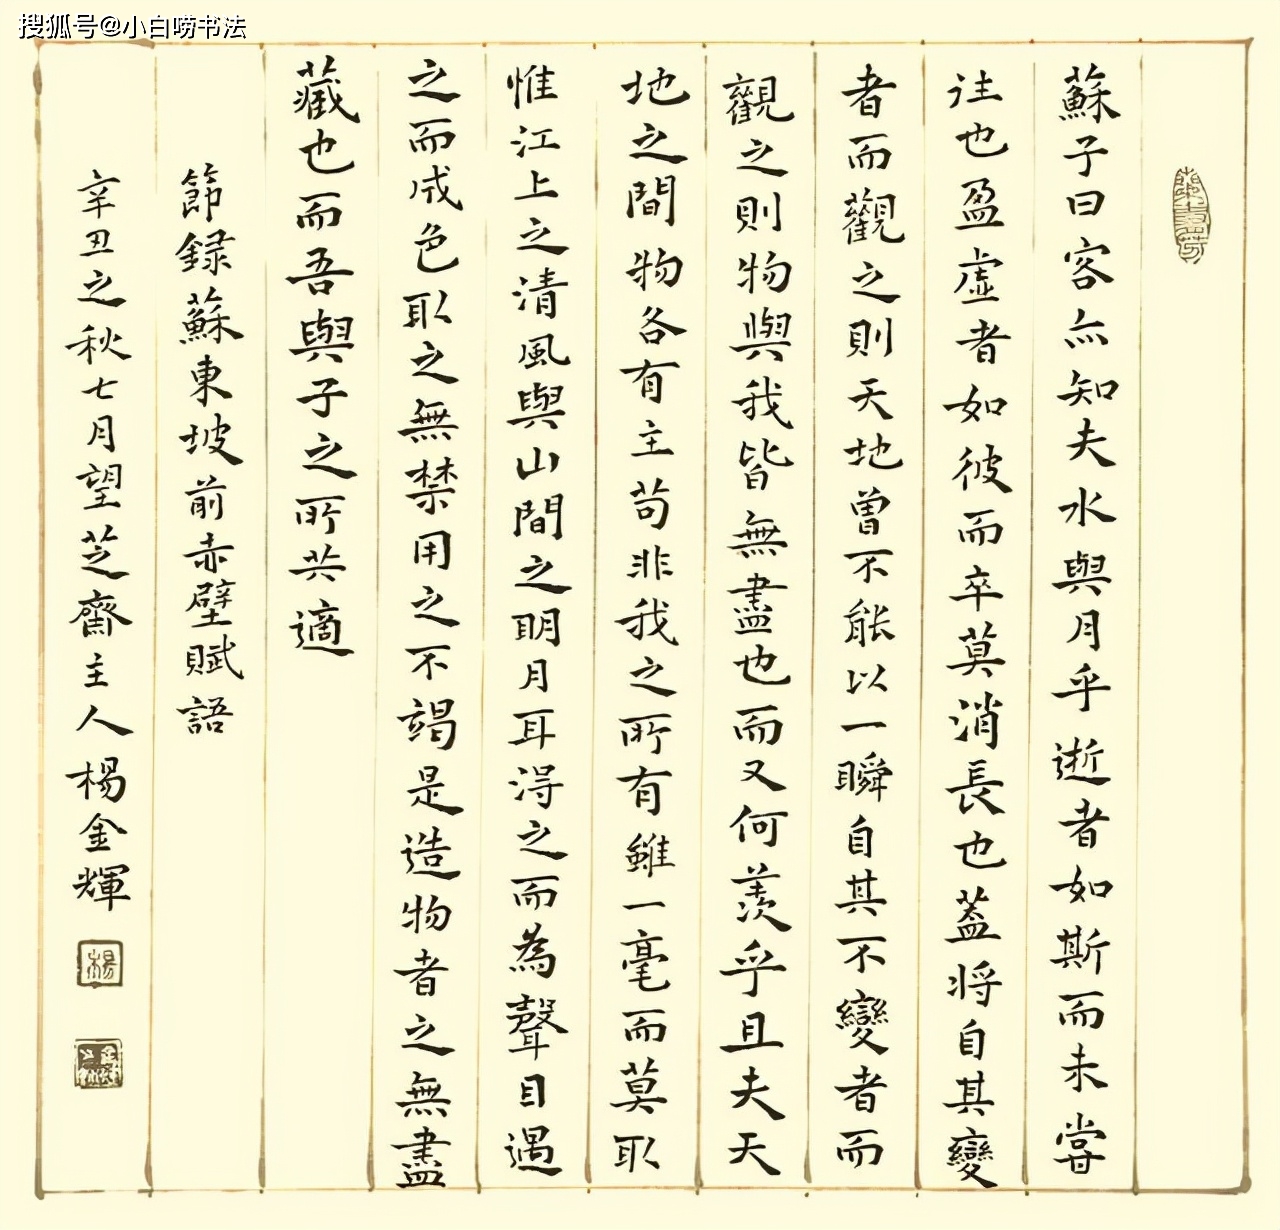 搜狐号@小白唠书法
蘇子曰客亦知夫水與月乎逝者如斯而未嘗
往也盈虛者如彼而卒莫消長也蓋將自其變
者而觀之則天地曾不能以一瞬自其不變者而
觀之則物與我皆無盡也而又何羨乎且夫天
地之間物各有主苟非我之所有雖一毫而莫取
惟江上之清風與山間之明月耳得之而為聲目遇
之而成色取之無禁用之不竭是造物者之無盡
藏也而吾與子之所共適
節録蘇東坡前赤壁賦語
辛丑之秋七月望芝齋主人楊金輝
楊